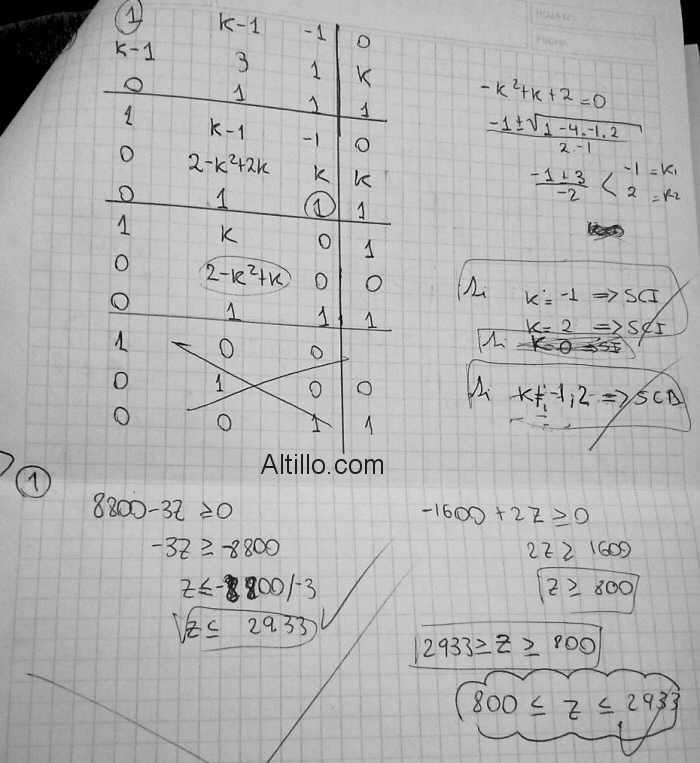 ① k-1 -1 0
k-1 3 1 k
0 1 1 1
1 k-1 -1 0
0 2-k²+2k k k
0 1 ① 1
1 k 0 1
0 2-k²+k 0 0
0 1 1 1
1 0 0
0 1 0 0
0 0 1 1
-k²+k+2=0
-1±√1-4.-1.2
2.-1
-1±3
-2
< -1=k1
2 =k2
Si k=-1 => SCI
k=2 => SCI
Si k=0 => SI
Si k≠-1,2 => SCD
Altillo.com
①
8800-3z ≥0
-3z ≥ -8800
z ≤ -8800/-3
z ≤ 2933
-1600 + 2z ≥ 0
2z ≥ 1600
z ≥ 800
2933 ≥ z ≥ 800
800 ≤ z ≤ 2933